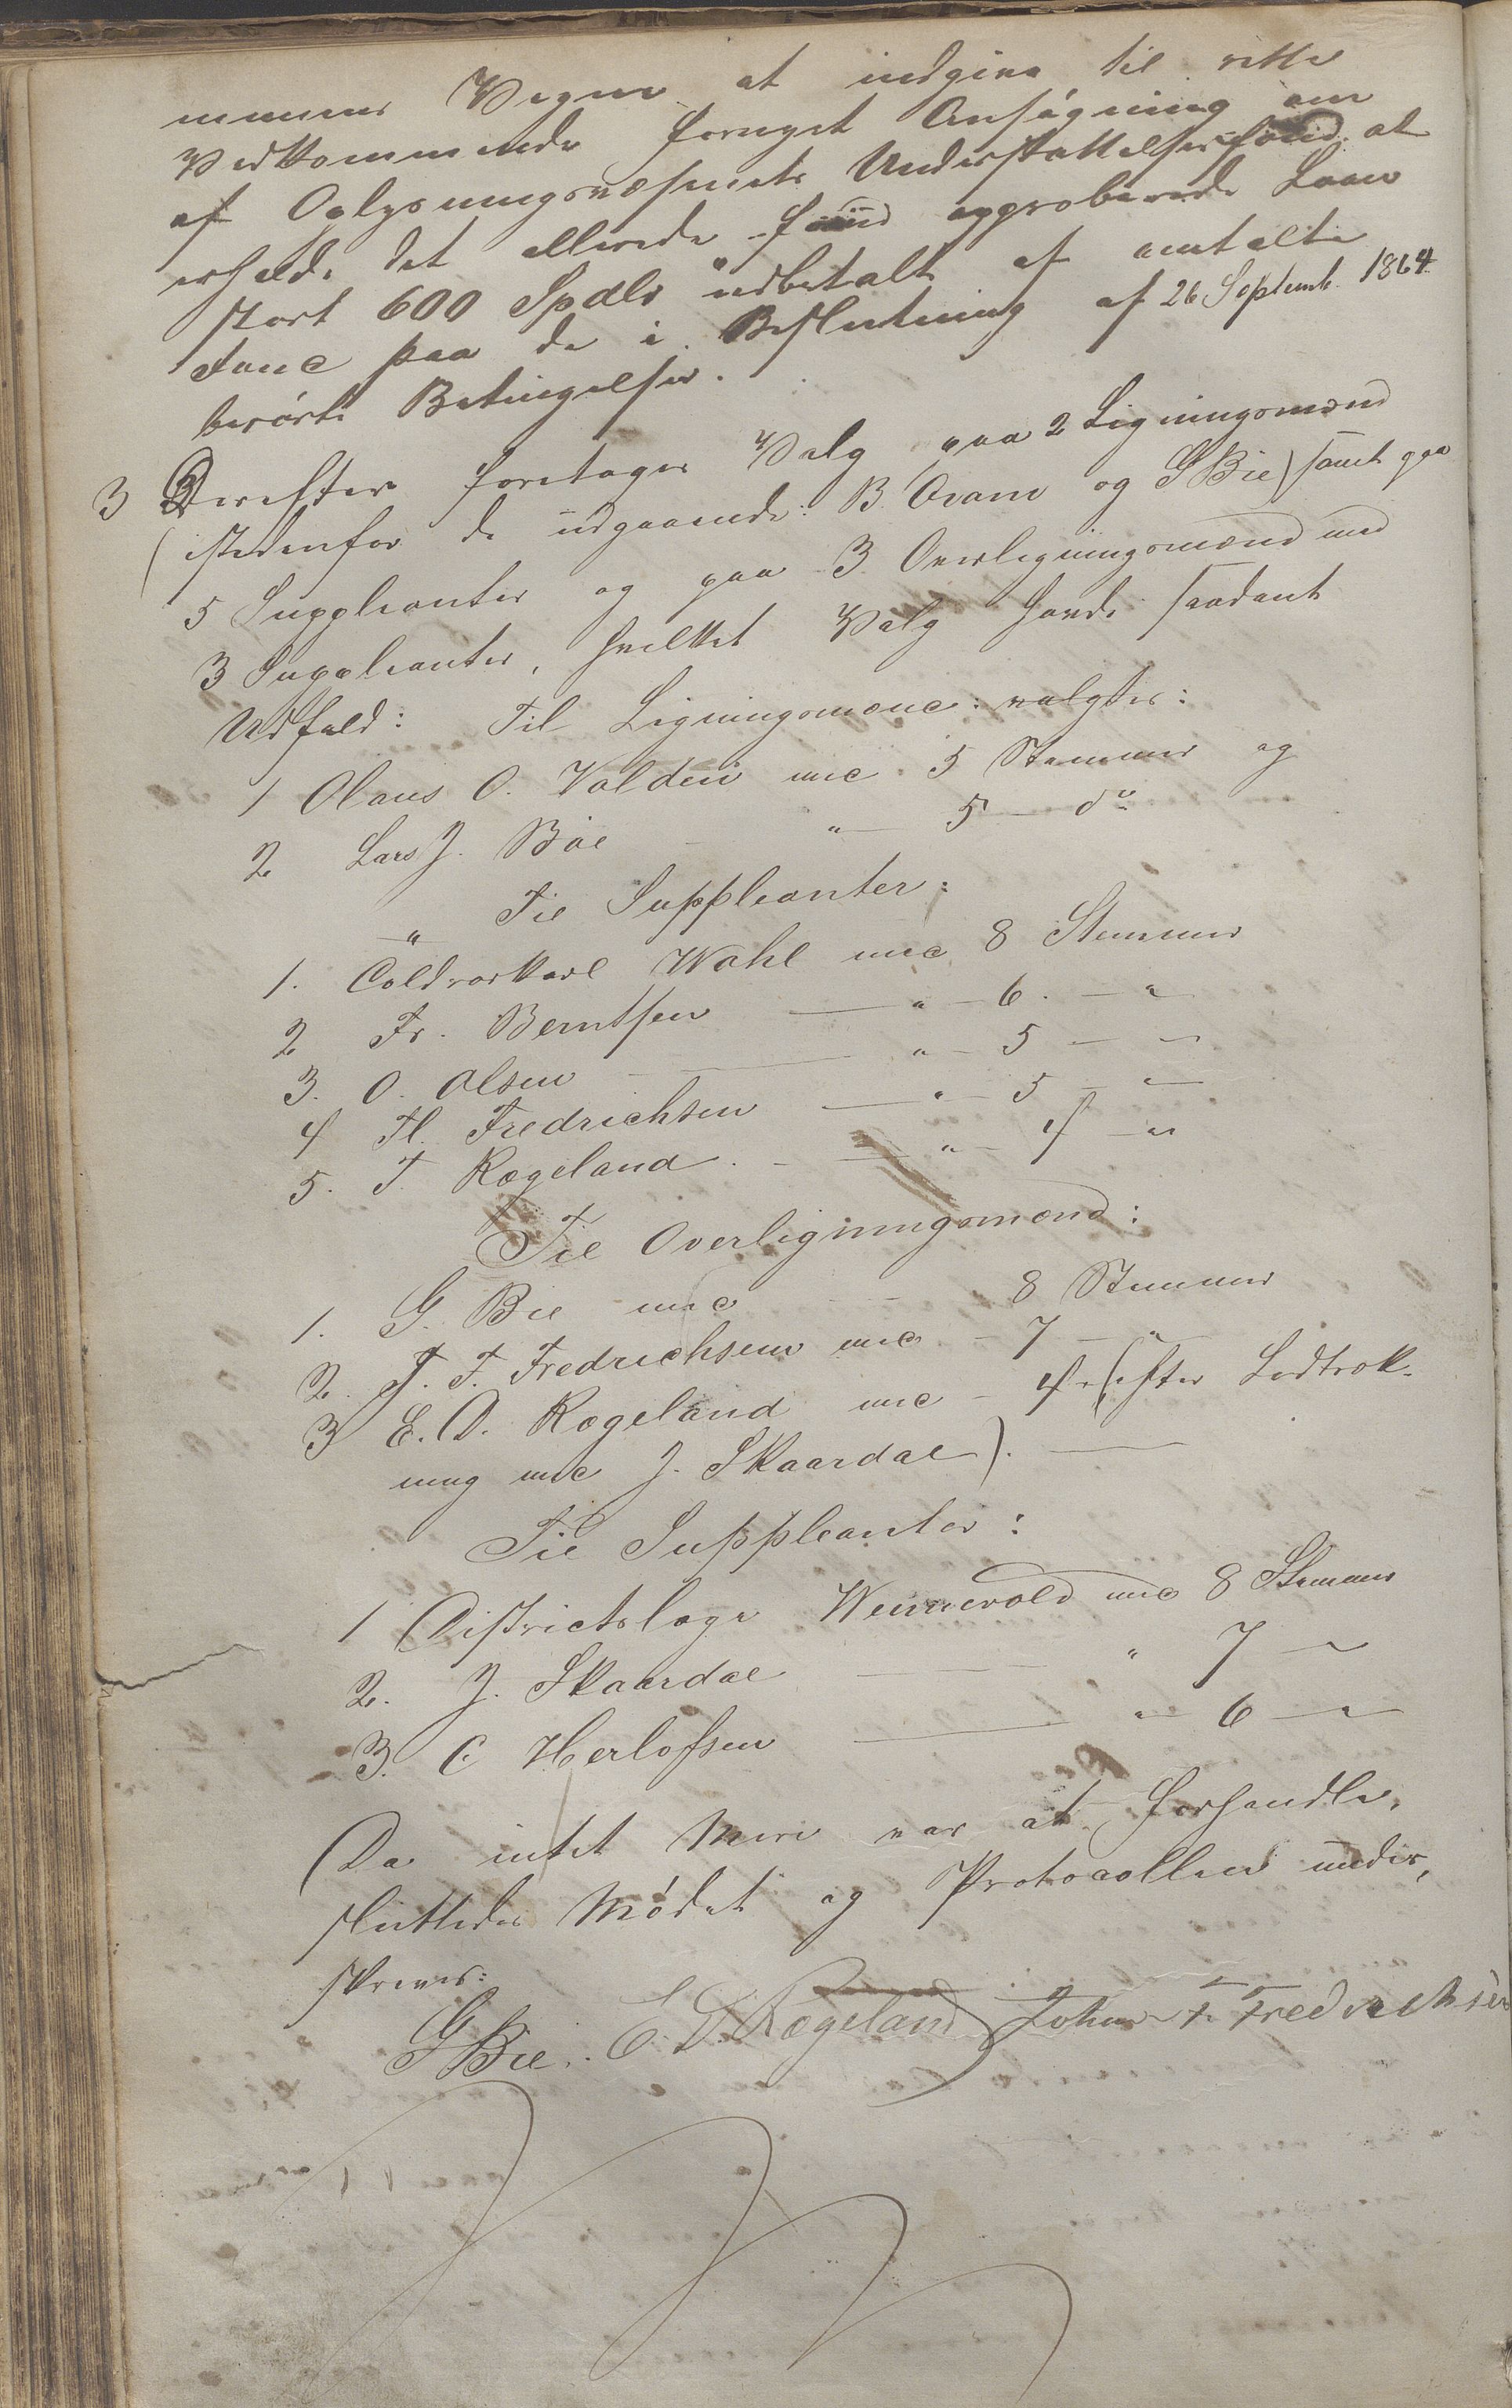 munens Vegne at indgive til rette
Vedkommende fornyet Ansøgning om
af Oplysningsvæsenets Understøttelsesfond at
erholde det allerede approberede Laan
stort 600 Spdlr udbetalt af omtalte
Fond paa de i Beslutning af 26 Septemb. 1864
berørte Betingelser.
3 Derefter foretoges Valg paa 2 Ligningsmænd
(istedenfor de udgaaende: B. Qvam og G Bie) samt paa
5 Suppleanter og paa 3 Overligningsmænd med
3 Suppleanter, hvilket Valg havde saadant
Udfald: Til Ligningsmænd valgtes:
1 Olaus O. Valden med 5 Stemmer og
2 Lars J. Bøe " 5 do
" Til Suppleanter:
1. Coldevin Wahl med 8 Stemmer
2 Fr. Berntsen — " — 6. — "
3. O. Olsen — " — 5 — "
4 Fl. Fredrichsen — " — 5 — "
5. T. Rogeland. — " — 4 — "
Til Overligningsmænd:
1. G. Bie med 8 Stemmer
2. J. F. Fredrichsen med - 7 — "
3 E. D. Rogeland med - 4 " (efter Lodtræk-
ning med J. Skaardal).
Til Suppleanter:
1 Districtslæge Wennevold med 8 Stemmer
2. J. Skaardal — " 7 — "
3. C Herlofsen — " — 6 — "
Da intet mere var at forhandle,
sluttedes Mødet og Protocollen under,
skreves:
GBie. E. D. Rogeland John F. Fredrechsen